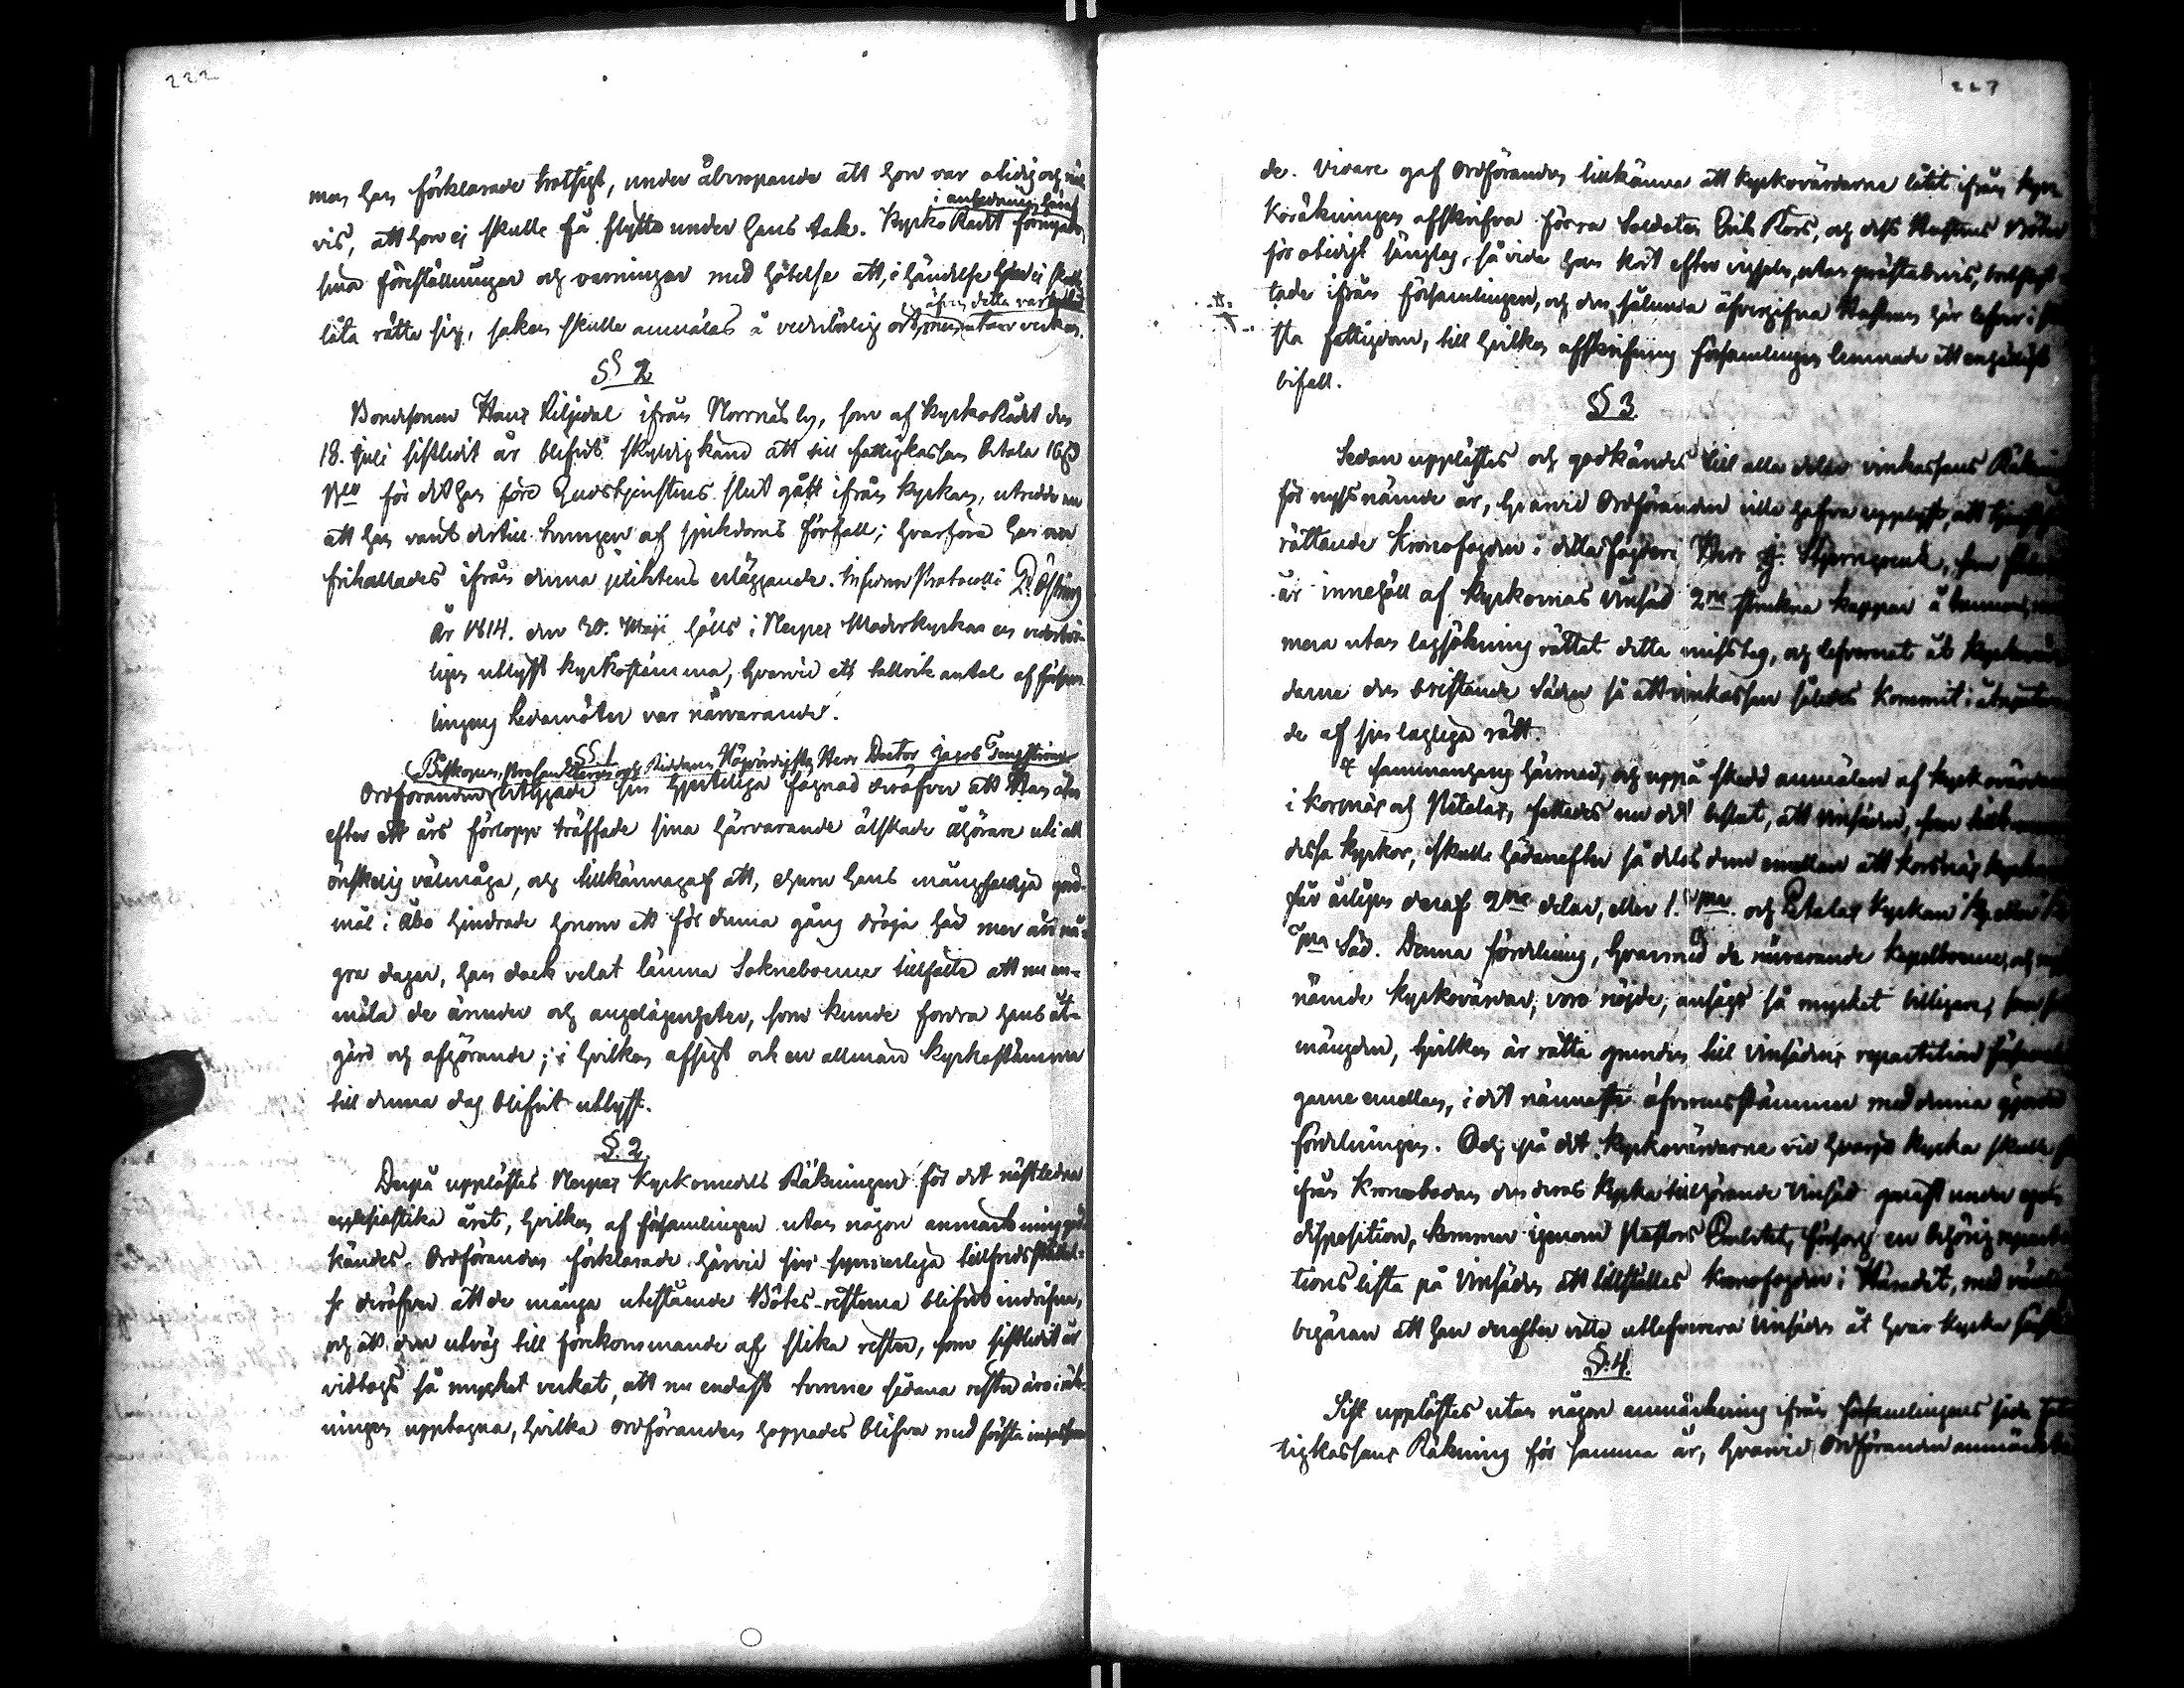 222
man han förklarade trotsigt, under åberopande att hon var obidig och
vis, att hon ej skulle få flytta under hans tak. Kyrko Rådet i anledning häraf förnyade
sina föreställningar och varningar med hotelse att, i händelse hon ej skulle
låta rätta sig, saken skulle anmälas å vederbörlig ort, men äfven detta var utan verkan.
§ 2
Bondesonen Hans Liljedal ifrån Norrnäs by, som af KyrkoRådet den
18. Juli sistledit år blifvit skyldig känd att till fattigkassan betala 16 ß
Bco för det han före Gudstjenstens slut gått ifrån kyrkan, utredde nu
att han varit dertill tvungen af sjukdoms förfall; hvarföre han nu
frihallades ifrån denna pliktens erläggande. In fidem Protocolli
År 1814. den 30. Maji hölls i Nerpes Moderkyrka en vederbör-
ligen utlyst Kyrkostämma, hvarvid ett talrik antal af försam-
lingens Ledamöter var närvarande.
§ 1
Ordföranden Biskopen, Procancelleren och Riddaren Högvördigste Herr Doctor Jacob Tengström betygade sin hjerteliga fägnad deröfver att Han åter
efter ett års förlopp träffade sina härvarande älskade åhörare uti all
önskelig välmåga, och tillkännagaf att, ehuru Hans mångfaldiga göro-
mål i Åbo hindrade honom att för denna gång dröja här mer än nå-
gra dagar, han dock velat lämna Sokneboerne tillfälle att nu an-
mäla de ärender och angelägenheter, som kunde fordra hans åt-
gärd och afgörande; i hvilken afsigt ock en allmän Kyrkostämma
till denna dag blifvit utlyst.
§. 2.
Derpå upplästes Nerpes Kyrkomedels Räkningen för det nästledna
ecclesiastika året, hvilken af församlingen utan någon anmärkning god-
kändes. Ordföranden förklarade härvid sin synnerliga tillfredsställel-
se deröfver att de många utestående Bötes-resterna blifvit indrifna,
och att den utväg till förekommande af slika rester, som sistledit år
vidtogs så mycket verkat, att nu endast tvenne sådana rester äro i räk-
ningen upptagna, hvilka Ordföranden hoppades blifva med första
223
de. Vidare gaf Ordföranden tillkänna att kyrkovärdarne låtit ifrån kyr-
koräkningen afskrifva förra Soldaten Erik Kors, och dess Hustrus Böter
för otidigt sänglag, så vida han kort efter vigseln, utan prästabevis,
tade ifrån församlingen, och den sålunda öfvergifna Hustrun här lefver i
sta fattigdom, till hvilken afskrifning församlingen lemnade ett enhälligt
bifall.
§ 3.
Sedan upplästes och godkändes till alla delar vinkassans Räkning
för nyssnämde år, hvarvid Ordföranden ville hafva upplyst, att
rättande Kronofogden i detta fögderi Herr J. Stjerncreutz, som
år innehöll af Kyrkornas Vinsäd 2ne strukna kappar å tunnan,
mera utan lagsökning rättat detta misstag, och lefvererat åt Kyrkovär-
darne den bristande Säden så att vinkassan således kommit i åtnjutan-
de af sin lagliga rätt.
I sammanhang härmed, och uppå skedd anmälan af kyrkovärdarne
i Korsnäs och Petalax, fattades nu det beslut, att vinsäden, som tillkommer
dessa kyrkor, skulle hädanefter så delas dem emellan att Korsnäs kyrka
får årligen deraf 2ne delar, eller 1. Tna. och Petalax Kyrkan
Tna Säd. Denna fördelning, hvarmed de närvarande Kapellboerne, och
nämde kyrkovärdar, voro nöjde, ansågs så mycket billigare, som
mängden, hvilken är rätta grunden till Vinsädens repartition
garne emellan, i det närmaste öfverensstämmer med denna gjorda
fördelningen. Och på det Kyrkovärdarne vid hvarje kyrka skulle
ifrån Kronoboden den deras Kyrka tillhörande Vinsäd genast under egen
disposition, kommer igenom Pastors Embetets försorg en behörig reparti-
tions lista på Vinsäden att tillställas Kronofogden i Häradet, med
begäran att han derefter ville utlefverera Vinsäden åt hvar kyrka
§. 4.
Sist upplästes utan någon anmärkning ifrån församlingens sida Fat-
tigkassans Räkning för samma år, hvarvid Ordföranden anmärkte